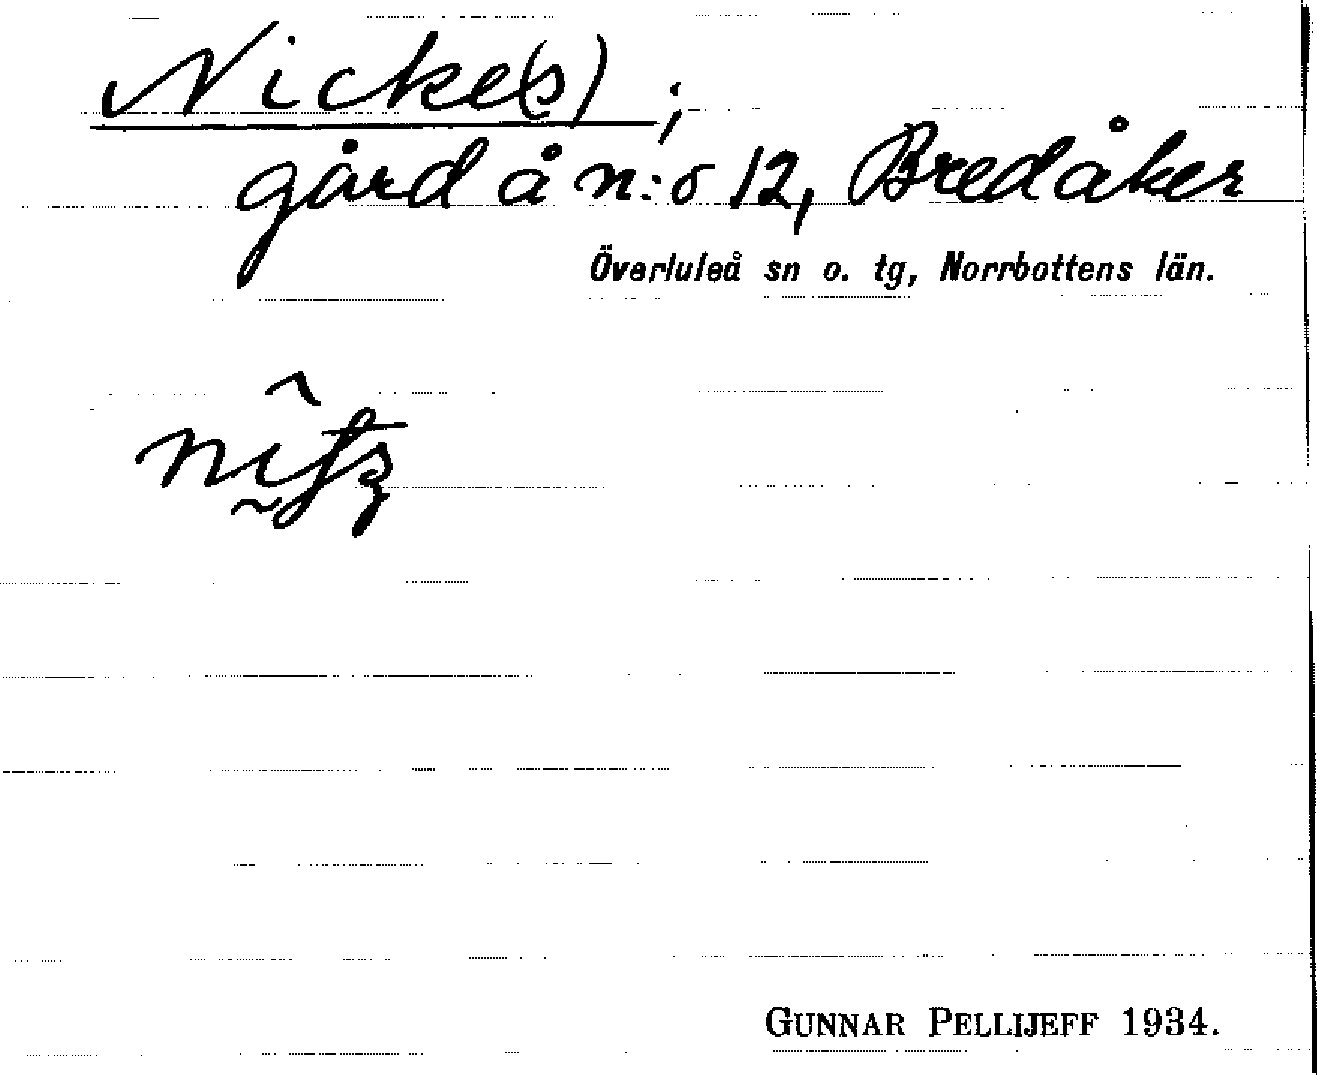 Nicke(s);
gård å n:o 12, Bredåker
Överluleå sn o. tg, Norrbottens län.
GUNNAR PELLIJEFF 1934.